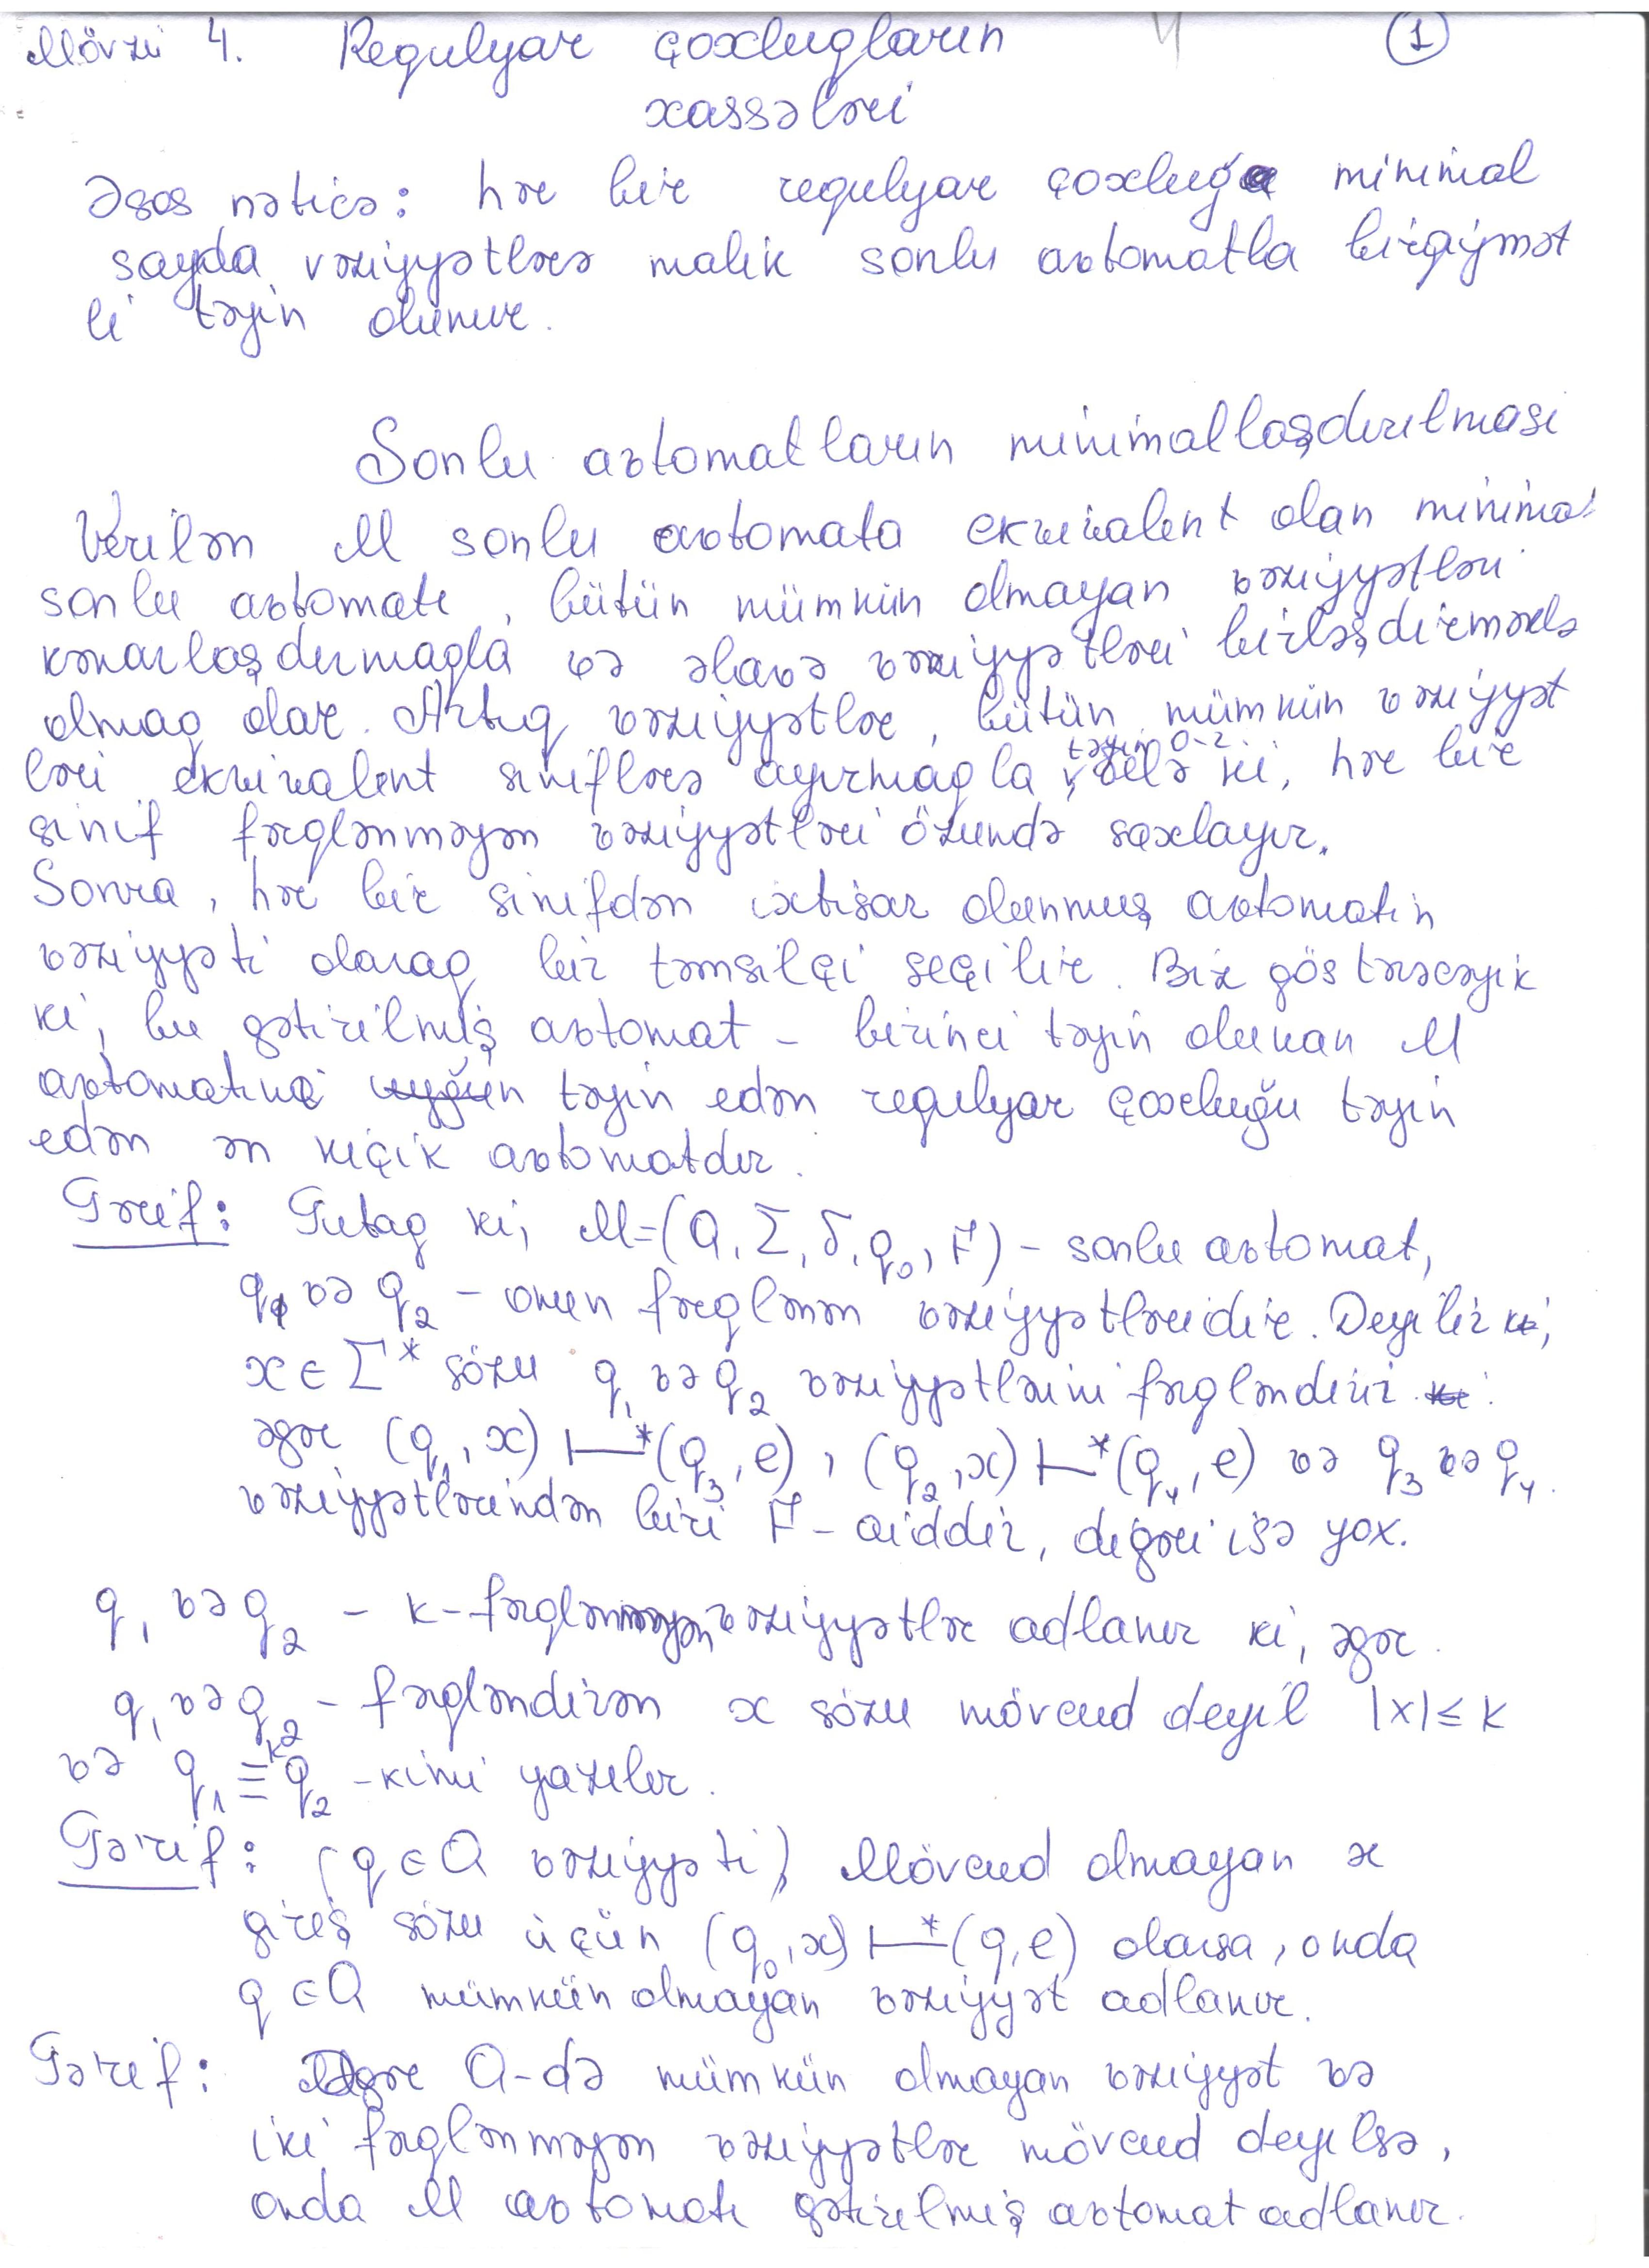 Mövzu 4. Regulyar çoxluqların ①
xassələri
Əsas nəticə: hər bir regulyar çoxluğa minimal
sayda vəziyyətlərə malik sonlu avtomatla birqiymət
li təyin olunur.
Sonlu avtomatların minimallaşdırılması
Verilən M sonlu avtomata ekvivalent olan minimal
sonlu avtomatı, bütün mümkün olmayan vəziyyətləri
kənarlaşdırmaqla və əlavə vəziyyətləri birləşdirməklə
almaq olar. Artıq vəziyyətlər, bütün mümkün vəziyyət
ləri ekvivalent siniflərə ayırmaqla təyin o-r elə ki, hər bir
sinif fərqlənməyən vəziyyətləri özündə saxlayır.
Sonra, hər bir sinifdən ixtisar olunmuş avtomatın
vəziyyəti olaraq bir təmsilçi seçilir. Biz göstərəcəyik
ki, bu gətirilmiş avtomat - birinci təyin olunan M
avtomatına təyin edən regulyar çoxluğu təyin
edən ən kiçik avtomatdır.
Tərif: Tutaq ki, M=(Q, Σ, δ, q₀, F) - sonlu avtomat,
q₁ və q₂ - onun fərqlənən vəziyyətləridir. Deyilir ki,
x ∈ Σ* sözü q₁ və q₂ vəziyyətlərini fərqləndirir.
əgər (q₁, x) ⊢* (q₃, e), (q₂, x) ⊢* (q₄, e) və q₃ və q₄
vəziyyətlərindən biri F - aiddir, digəri isə yox.
q₁ və q₂ - k-fərqlənməyən vəziyyətlər adlanır ki, əgər
q₁ və q₂ - fərqləndirən x sözü mövcud deyil |x| ≤ k
və q₁ ≡ᵏ q₂ - kimi yazılır.
Tə'rif: (q ∈ Q vəziyyəti) Mövcud olmayan x
giriş sözü üçün (q₀, x) ⊢* (q, e) olarsa, onda
q ∈ Q mümkün olmayan vəziyyət adlanır.
Tə'rif: Əgər Q-də mümkün olmayan vəziyyət və
iki fərqlənməyən vəziyyətlər mövcud deyilsə,
onda M avtomatı gətirilmiş avtomat adlanır.